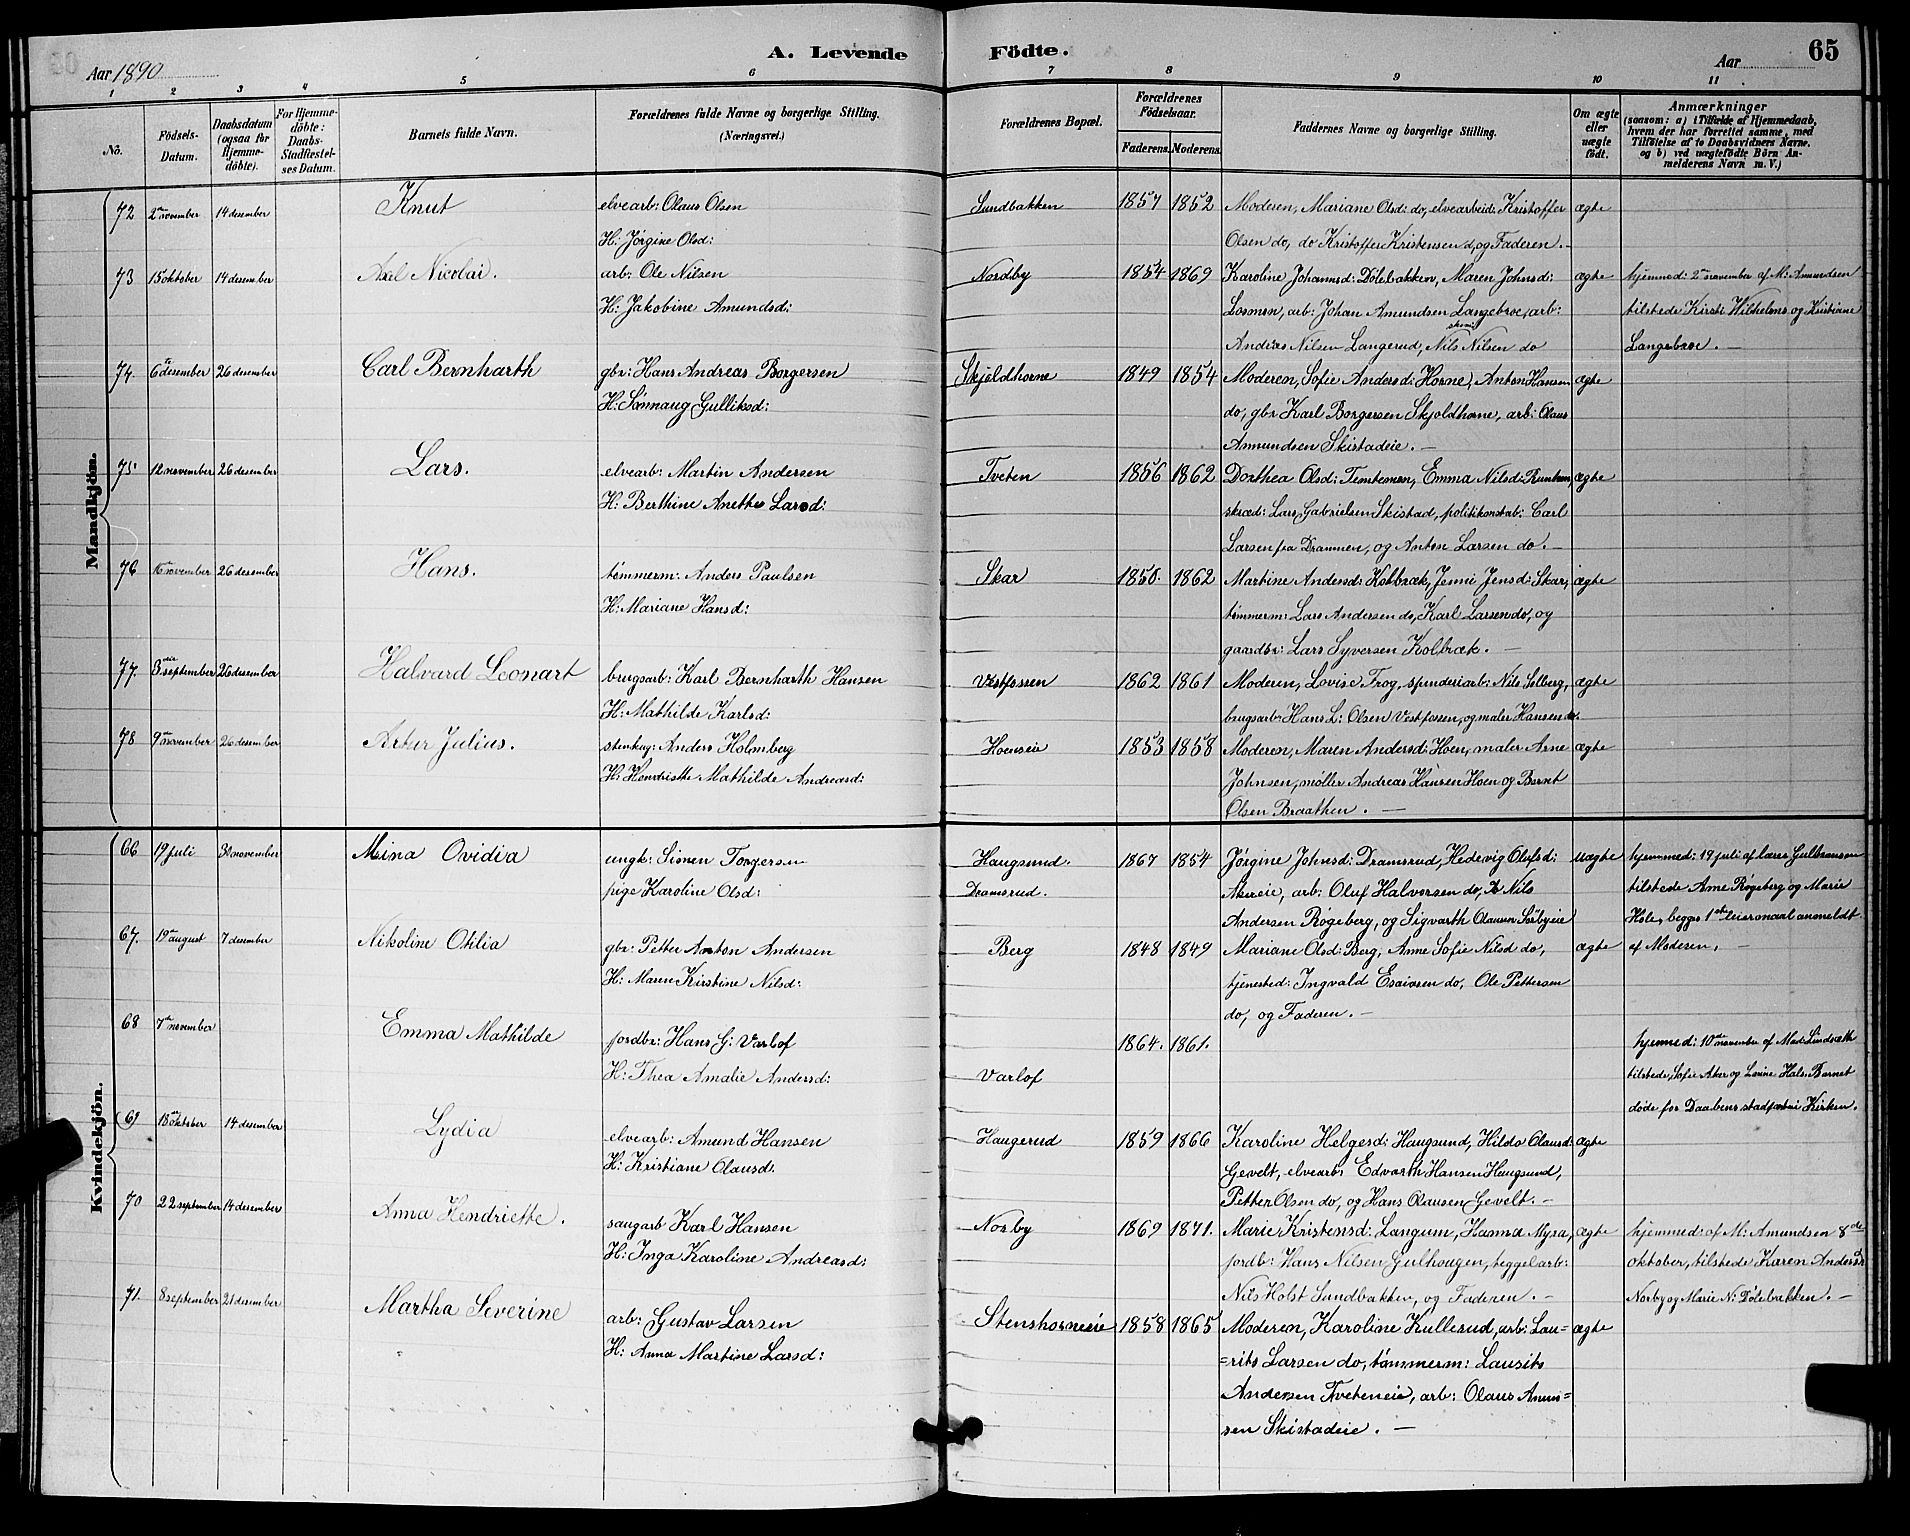 Aar 1890
A. Levende Födte.
Aar
65
1 2 3 4 5 6 7 8 9 10 11
No.
Födsels-Datum.
Daabsdatum (ogsaa for Hjemme-döbte).
For Hjemme-döbte: Daabs-Stadfæstel-ses Datum.
Barnets fulde Navn.
Forældrenes fulde Navne og borgerlige Stilling. (Næringsvei.)
Forældrenes Bopæl.
Forældrenes Födselsaar.
Faderens. Moderens.
Faddernes Navne og borgerlige Stilling.
Om ægte eller uægte födt.
Anmærkninger
(saasom: a) i Tilfælde af Hjemmedaab, hvem der har forrettet samme, med Tilföielse af to Daabsvidners Navne. og b) ved uægtefödte Börn An-melderens Navn m. V.)
Mandkjön.
72 2 november 14 desember Knut elvearb: Olaus Olsen Sundbakken 1857 1852 Moderen, Mariane Olsd: do, elvearbeid: Kristoffer ægte
H: Jørgine Olsd: Olsen do, do Kristoffer Kristensen do, og Faderen. —
73 15 oktober 14 desember Axel Nicolai. arb: Ole Nilsen Nordby 1854 1869 Karoline Johannsd: Dölebakken, Maren Johnsd: ægte hjemmed: 2 november af M: Amundsen
H: Jakobine Amundsd: Losmoen, arb: Johan Amundsen Langebroe, arb: tilstede Kirsti Wilhelms og Kristiane
Andreas Nilsen Langerud, Nils Nilsen do Langebroe. —
74 6 desember 26 desember Carl Bernharth gbr: Hans Andreas Borgersen Skjoldhorne 1849 1854 Moderen, Sofie Andersd: Horne, Anton Hansen ægte
H: Sønnaug Gulliksd: do, gbr Karl Borgersen Skjoldhorne, arb: Olaus
Amundsen Skistadeie. —
75 12 november 26 desember Lars. elvearb: Martin Andersen Tveten 1856 1862 Dorthea Olsd: Temtemoen, Emma Nilsd: ægte
H: Berthine Anethe Larsd: skræd: Lars Gabrielsen Skistad, politikonstab: Carl
Larsen fra Drammen, og Anton Larsen do. —
76 16 november 26 desember Hans. tömmerm: Anders Paulsen Skar 1850. 1862 Martine Andersd: Kolbræk, Jenni Jensd: Skar, ægte
H: Mariane Hansd: tömmerm: Lars Andersen do, Karl Larsen do, og
gaardbr: Lars Syversen Kolbræk. —
77. 3 september 26 desember Halvard Leonart brugsarb: Karl Bernharth Hansen Vestfossen 1862 1861 Moderen, Lovise Frog, spinderiarb: Nils Solberg, ægte
H: Mathilde Karlsd: brugsarb: Hans L: Olsen Vestfossen, og maler Hansen do.
78 9 november 26 desember Artur Julius. stenhug: Anders Holmberg Hoenseie 1853 1858 Moderen, Maren Andersd: Hoen, maler Arne ægte
H: Hendriette Mathilde Andreasd: Johnsen, møller Andreas Hansen Hoen og Bernt
Olsen Braathen. —
Kvindekjön.
66 19 juli 30 november Mina Ovidia ungk: Simen Torgersen Haugsund. 1867 1854 Jørgine Johnsd: Dramsrud, Hedevig Olufsd: uægte hjemmed: 19 juli af lærer Gulbransen
pige Karoline Olsd: Dramsrud. Akereie, arb: Oluf Halvorsen do, Nils tilstede Arne Røgeberg og Marie
Andersen Rogeberg, og Sigvarth Olausen Sörbyeie Hole, begges 1ste leiermaal anmeldt
67. 19 august 7 desember Nikoline Othlia gbr: Petter Anton Andersen Berg 1848 1849 Mariane Olsd: Berg, Anne Sofie Nilsd do, ægte af Moderen. —
H: Maren Kirstine Nilsd: tjenested: Ingvald Esaiasen do, Ole Pettersen
do, og Faderen. —
68 7 november Emma Mathilde jordbr: Hans G: Varlof Varlof 1864. 1861. hjemmed: 10 november af Mad:
H: Thea Amalie Andersd: tilstede, Sofie Aker og Lovine Hals. Barnet
døde før Daabens stadfæst: i Kirken.
69 18 oktober 14 desember Lydia elvearb: Amund Hansen Haugerud 1859 1866 Karoline Helgesd: Haugsund, Hilda Olausd: ægte
H: Kristiane Olausd. Gevelt, elvearb: Edvarth Hansen Haugsund,
Petter Olsen do, og Hans Olausen Gevelt. —
70 22 september 14 desember Anna Hendriette. saugarb Karl Hansen Norby 1869 1871. Marie Kristensd: Langum, Hanna Myra, ægte hjemmed: af M: Amundsen 8de
H: Inga Karoline Andreasd: jordb: Hans Nilsen Gulhaugen, teggelarb: oktober, tilstede Karen Andersd
Nils Holst Sundbakken, og Faderen. — Norby og Marie N: Dölebakken. —
71. 8 september 21 desember Martha Severine arb: Gustav Larsen Stenshorneeie 1858 1865 Moderen, Karoline Kullerud, arb: Lau= ægte
H: Anna Martine Larsd: =rits Larsen do, tømmerm: Lausits
Andersen Tveteneie, arb: Olaus Amun=
sen Skistadeie. —